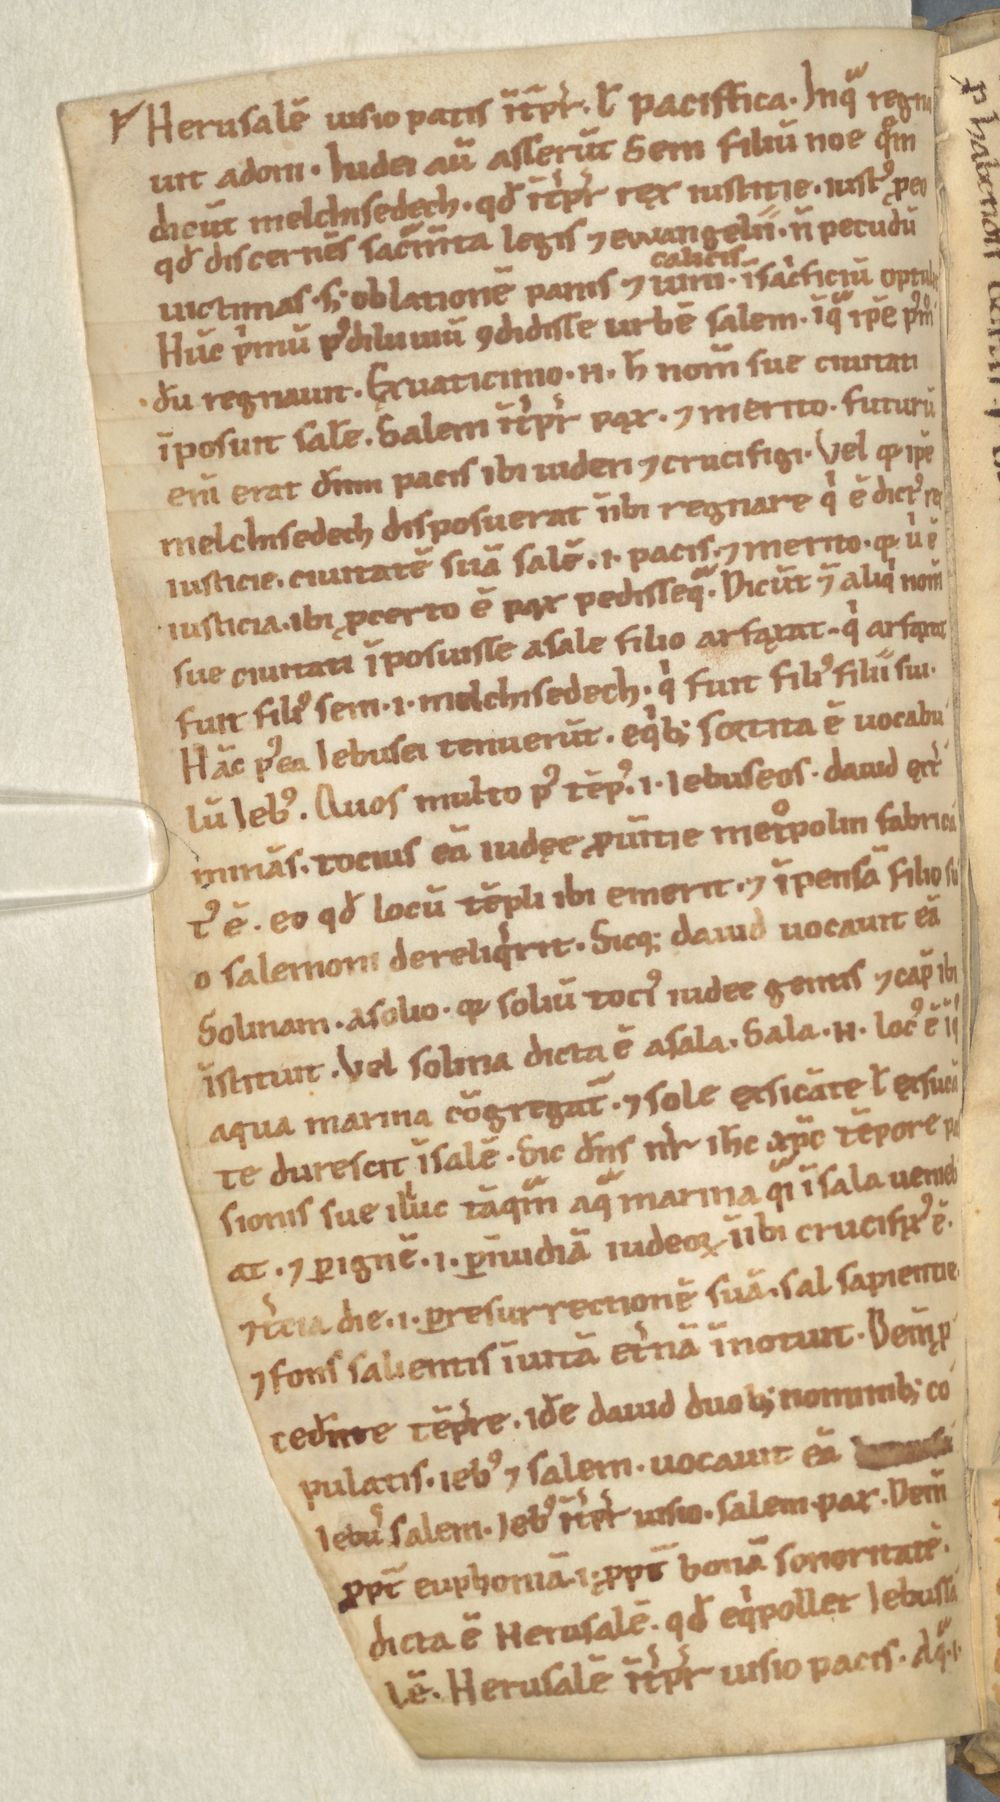 Herusalē uisio pacis ītp̄r̄. ł pacifica. Inqͣ regna
uit adoni. Iudei aū asserūt Sem filiū noe qͦm
dicūt melchisedech. qđ ītp̄r̄ rex iusticie. iustꝰ ꝓ eo
qđ discernēs sacm̄ta legis ⁊ ewangelii. n̄ pecudū
calicis
uictimas. sꝫ oblationē panis ⁊ uini. īsacͥficiū optul
Hūc pͥmū pꝰ diluuiū ꝯdidisse urbē salem. īqͣ ip̄e pͥm
dū regnauit. Ex uaticinio .n. h̄ nom̄ sue ciuitati
īposuit salē. Salem ītp̄r̄ pax. ⁊ merito. futurū
eni erat dn̄m pacis ibi uideri ⁊ crucifigi. Vel qꝛ ip̄e
melchisedech disposuerat īibi regnare qͥ ē dictꝰ rex
iusticie. ciuitatē suā salē .i. pacis. ⁊ merito. qꝛ uͥ ē
iusticia. ibi ꝓcerto ē pax pedisseqͣ. Dicūt ⁊ aliqͥ nom̄
sue ciuitati īposuisse a sale filio arfaxat. qͥ arfaxat
fuit filiꝰ sem .i. melchisedech. qͥ fuit filiꝰ filii sui.
Hāc pꝰea Iebusei tenuerūt. eqͥbꝫ sortita ē uocabu
lū Iebꝰ. Quos multo pꝰ tēpꝰ .i. Iebuseos. dauid ext̄
minās. tocius eā iudee ꝓuītie metͦpolin fabrica
tꝰ ē. eo qđ locū tēpli ibi emerit. ⁊ īpensā filio su
o salemoni dereliqͥrit. Sicqꝫ dauid uocauit eā
Solinam. a solio. qꝛ soliū tociꝰ iudee gentis ⁊ cap̄ ibi
īstituit. Vel solina dicta ē a sala. Sala .n. locꝰ ē ī qͦ
aqua marina cōgregat̄. ⁊ sole exsicāte ł exsucā
te durescit ī salē. Sic dn̄s nr̄ ih̄c xp̄c tēpore pa
sionis sue illuc tāqͣm aqͣ marina qͣi ī sala uenieb
at. ⁊ ꝑ ignē .i. ꝑ īuidiā iudeoꝝ īibi crucifixꝰ ē.
⁊ t̄cia die .i. ꝑ resurrectionē suā. sal sapientie
⁊ fons salientis ī uitā et̄nā īnotuit. Dem̄ p
cedn̄te tēpͥre. idē dauid duobꝫ nominibꝫ co
pulatis. iebꝰ ⁊ salem. uocauit eā
Iebuͥsalem. Iebꝰ ītp̄r̄ uisio. salem. pax. Dem̄
ꝓpt̄ euphoniā .i. ꝓpt̄ bonā sonoritatē.
dicta ē Herusalē. qđ eqͥpollet Iebussa
lē. Herusalē ītp̄r̄ uisio pacis. aqͣ .i.